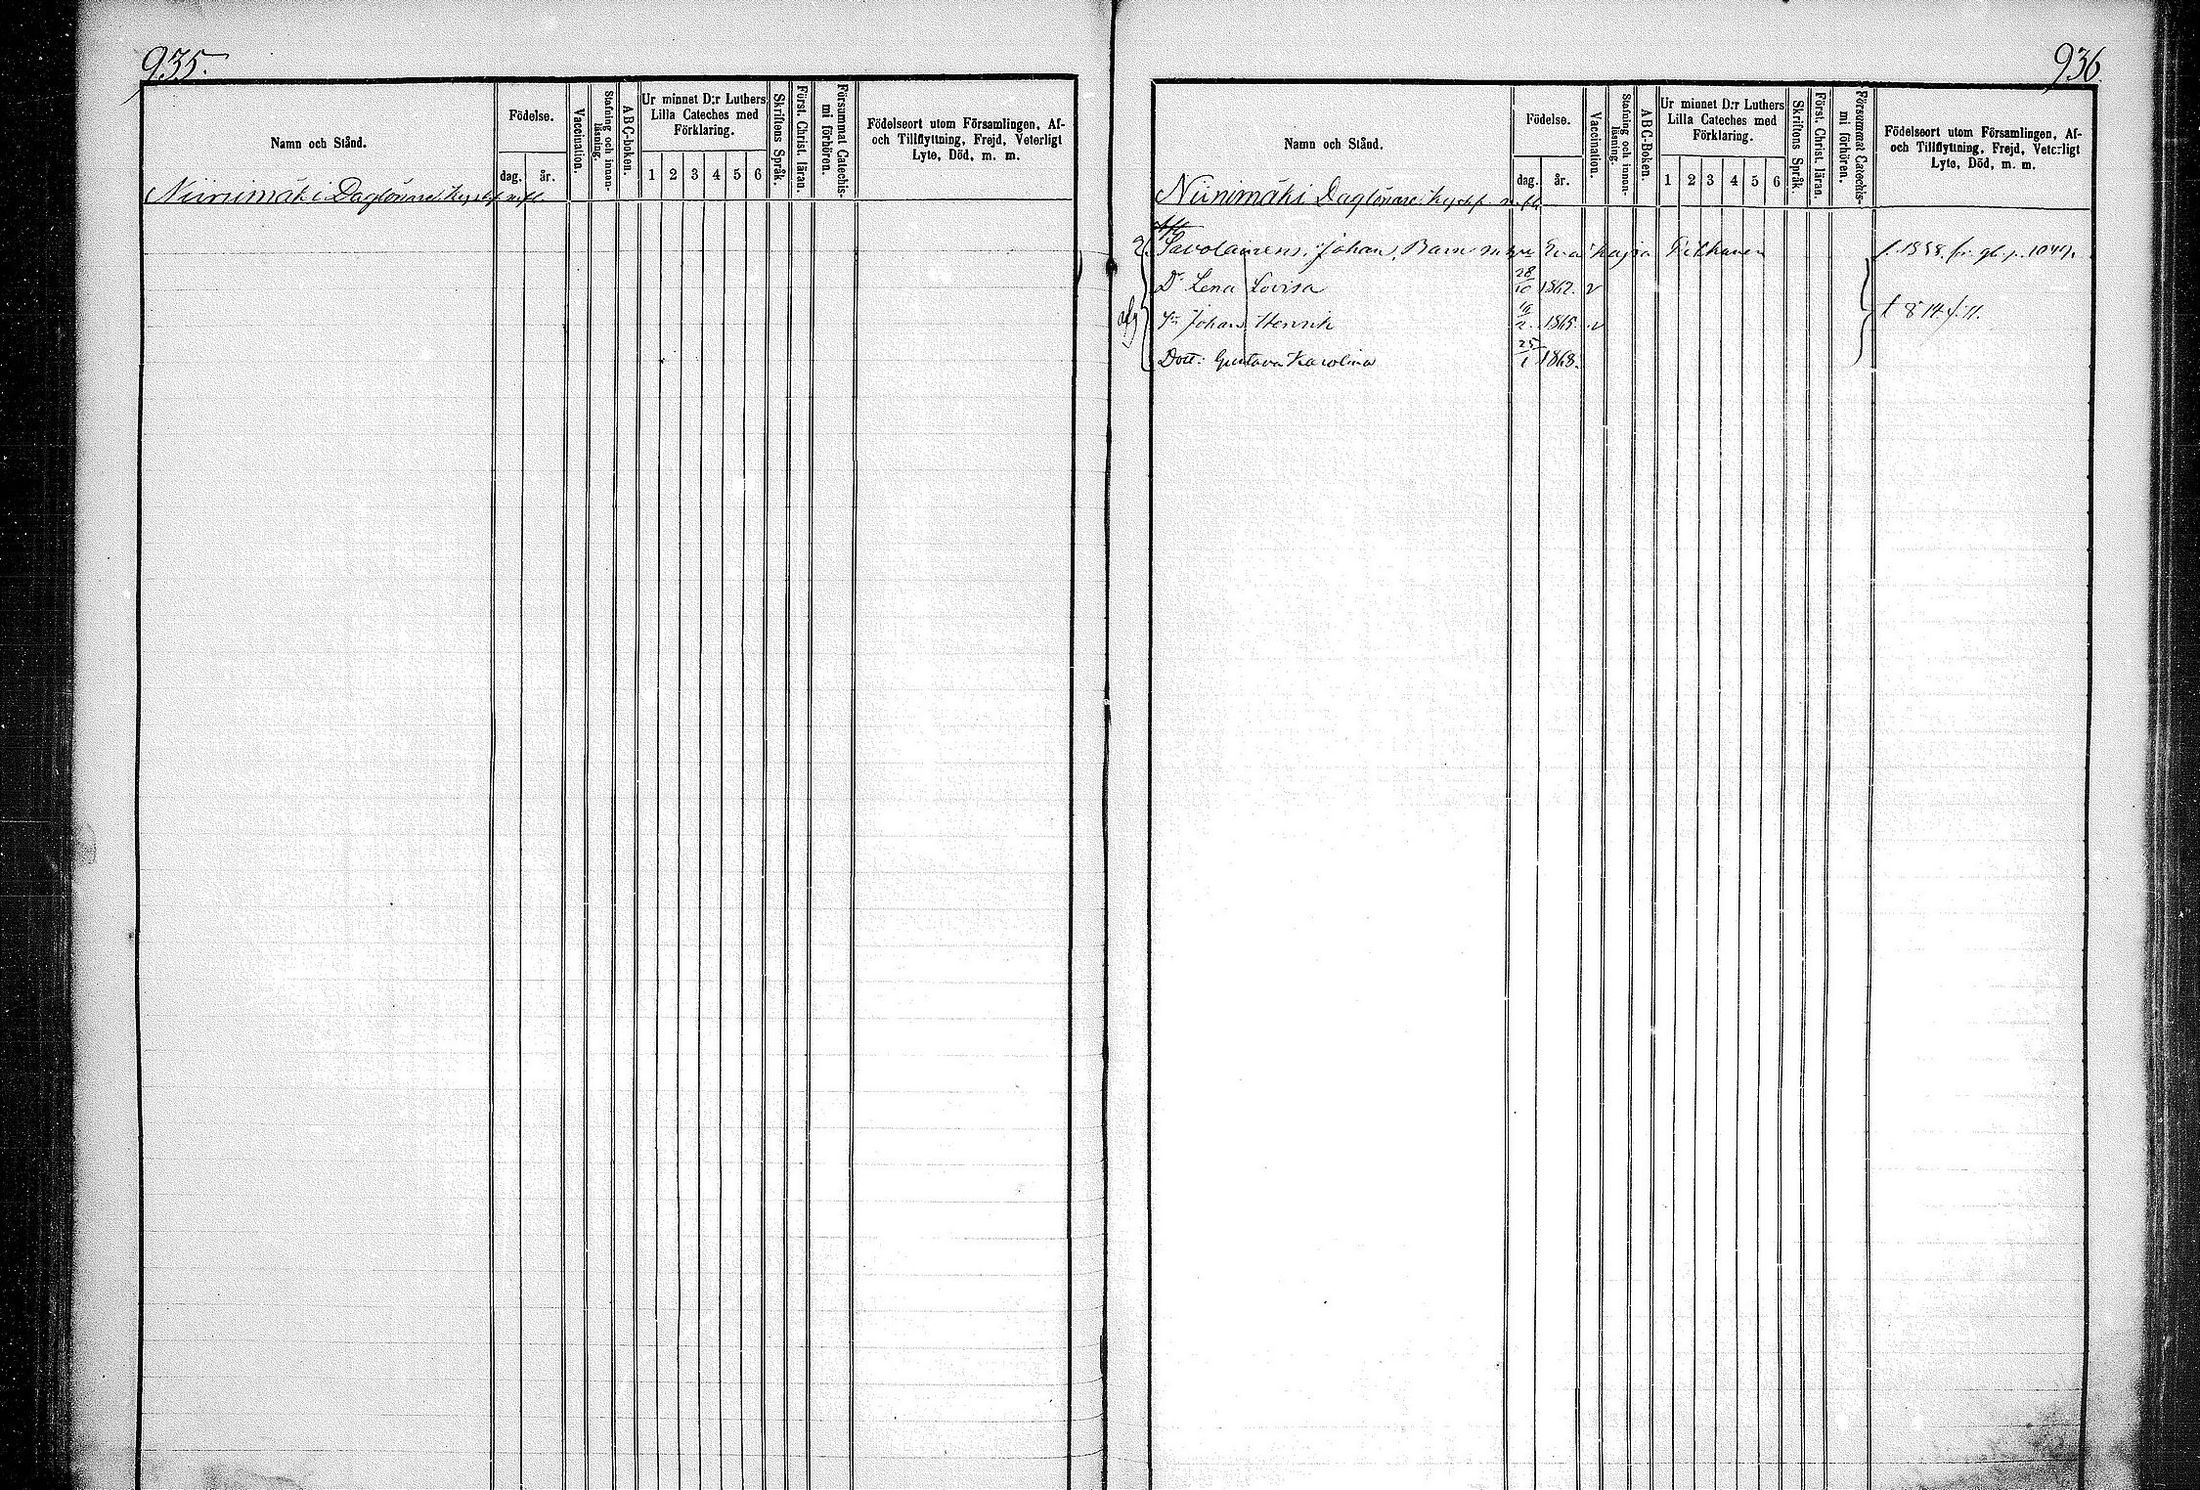 935.
Namn och Stånd.
Födelse.
dag. år.
Vaccination.
Stafning och innan-
läsning.
ABC-boken.
Ur minnet D:r Luthers
Lilla Cateches med
Förklaring.
1 2 3 4 5 6
Skriftens Språk.
Först. Christ. läran.
Försummat Catechis-
mi förhören.
Födelseort utom Församlingen, Af-
och Tillflyttning, Frejd, Veterligt
Lyte, Död, m. m.
Niinimäki Daglönare
936.
Namn och Stånd.
Födelse.
dag. år.
Vaccination.
Stafning och innan-
läsning.
ABC-Boken.
Ur minnet D:r Luthers
Lilla Cateches med
Förklaring.
1 2 3 4 5 6
Skriftens Språk.
Först. Christ. läran.
Försummat Catechis-
mi förhören.
Födelseort utom Församlingen, Af-
och Tillflyttning, Frejd, Veterligt
Lyte, Död, m. m.
Niinimäki Daglönare
Savolainens, Johan, Barn Eva Kajsa
Dr Lena Lovisa 28/10 1862. v
Sn Johan Henrik 1865. v
Dott: Gustava Karolina 25/1 1868.